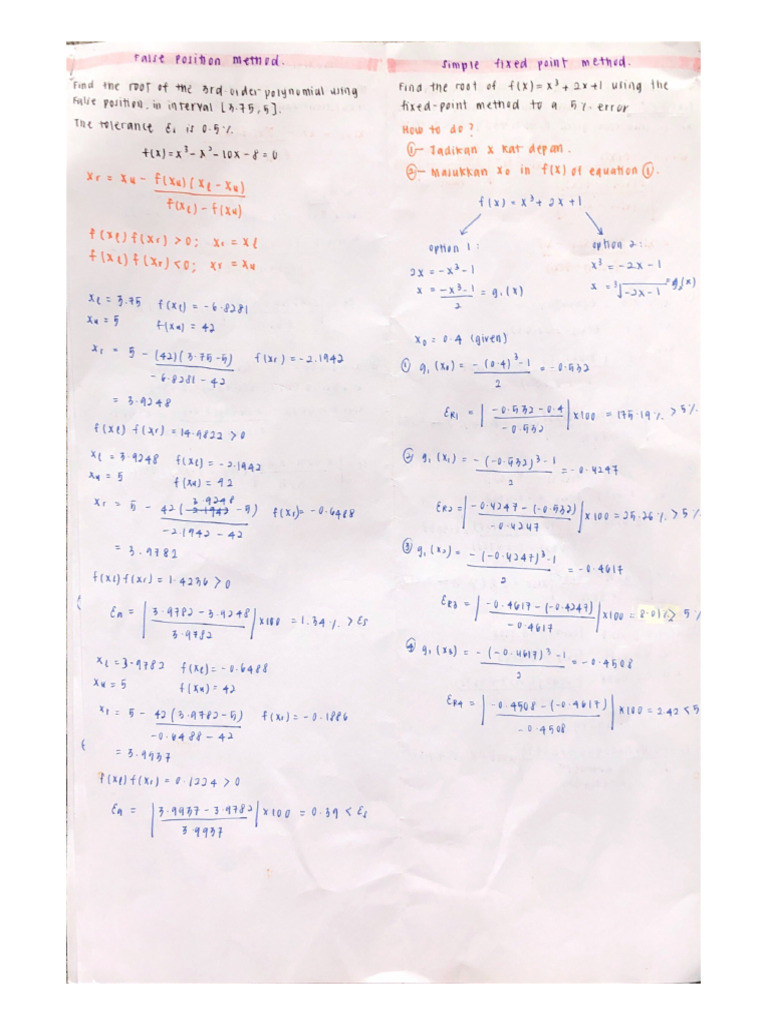 False position method.
Find the root of the 3rd-order polynomial using
False position, in interval [3.75,5].
The tolerance Es is 0.5%.
f(x) = x³ - x² - 10x - 8 = 0
xr = xu - f(xu)(xl - xu)
f(xl) - f(xu)
f(xl) f(xr) > 0; xr = xl
f(xl) f(xr) < 0; xr = xu
xl = 3.75 f(xl) = -6.8281
xu = 5 f(xu) = 42
xr = 5 - (42)(3.75-5) f(xr) = -2.1942
-6.8281 - 42
= 3.9248
f(xl) f(xr) = 14.9822 > 0
xl = 3.9248 f(xl) = -2.1942
xu = 5 f(xu) = 42
3.9248
xr = 5 - 42(-2.1942 -5) f(xr) = -0.6488
-2.1942 - 42
= 3.9782
f(xl)f(xr) = 1.4236 > 0
Ea = |3.9782 - 3.9248| x100 = 1.34% > Es
3.9782
xl = 3.9782 f(xl) = -0.6488
xu = 5 f(xu) = 42
xr = 5 - 42(3.9782-5) f(xr) = -0.1886
-0.6488 - 42
= 3.9937
f(xl)f(xr) = 0.1224 > 0
Ea = |3.9937 - 3.9782| x100 = 0.39 < Es
3.9937
Simple fixed point method.
Find the root of f(x) = x³ + 2x + 1 using the
fixed-point method to a 5% error
How to do?
① - Jadikan x kat depan.
② - Masukkan x0 in f(x) of equation ①.
f(x) = x³ + 2x + 1
option 1: option 2:
2x = -x³ - 1 x³ = -2x - 1
x = -x³-1 = g₁(x) x = ³√-2x-1 = g₂(x)
2
x0 = 0.4 (given)
① g₁(x0) = -(0.4)³-1 = -0.532
2
ER1 = |-0.532 - 0.4| x100 = 175.19% > 5%
-0.532
② g₁(x1) = -(-0.532)³-1 = -0.4247
2
ER2 = |-0.4247 - (-0.532)| x100 = 25.26% > 5%
-0.4247
③ g₁(x2) = -(-0.4247)³-1 = -0.4617
2
ER3 = |-0.4617 - (-0.4247)| x100 = 8.01% > 5%
-0.4617
④ g₁(x3) = -(-0.4617)³-1 = -0.4508
2
ER4 = |-0.4508 - (-0.4617)| x100 = 2.42 < 5
-0.4508